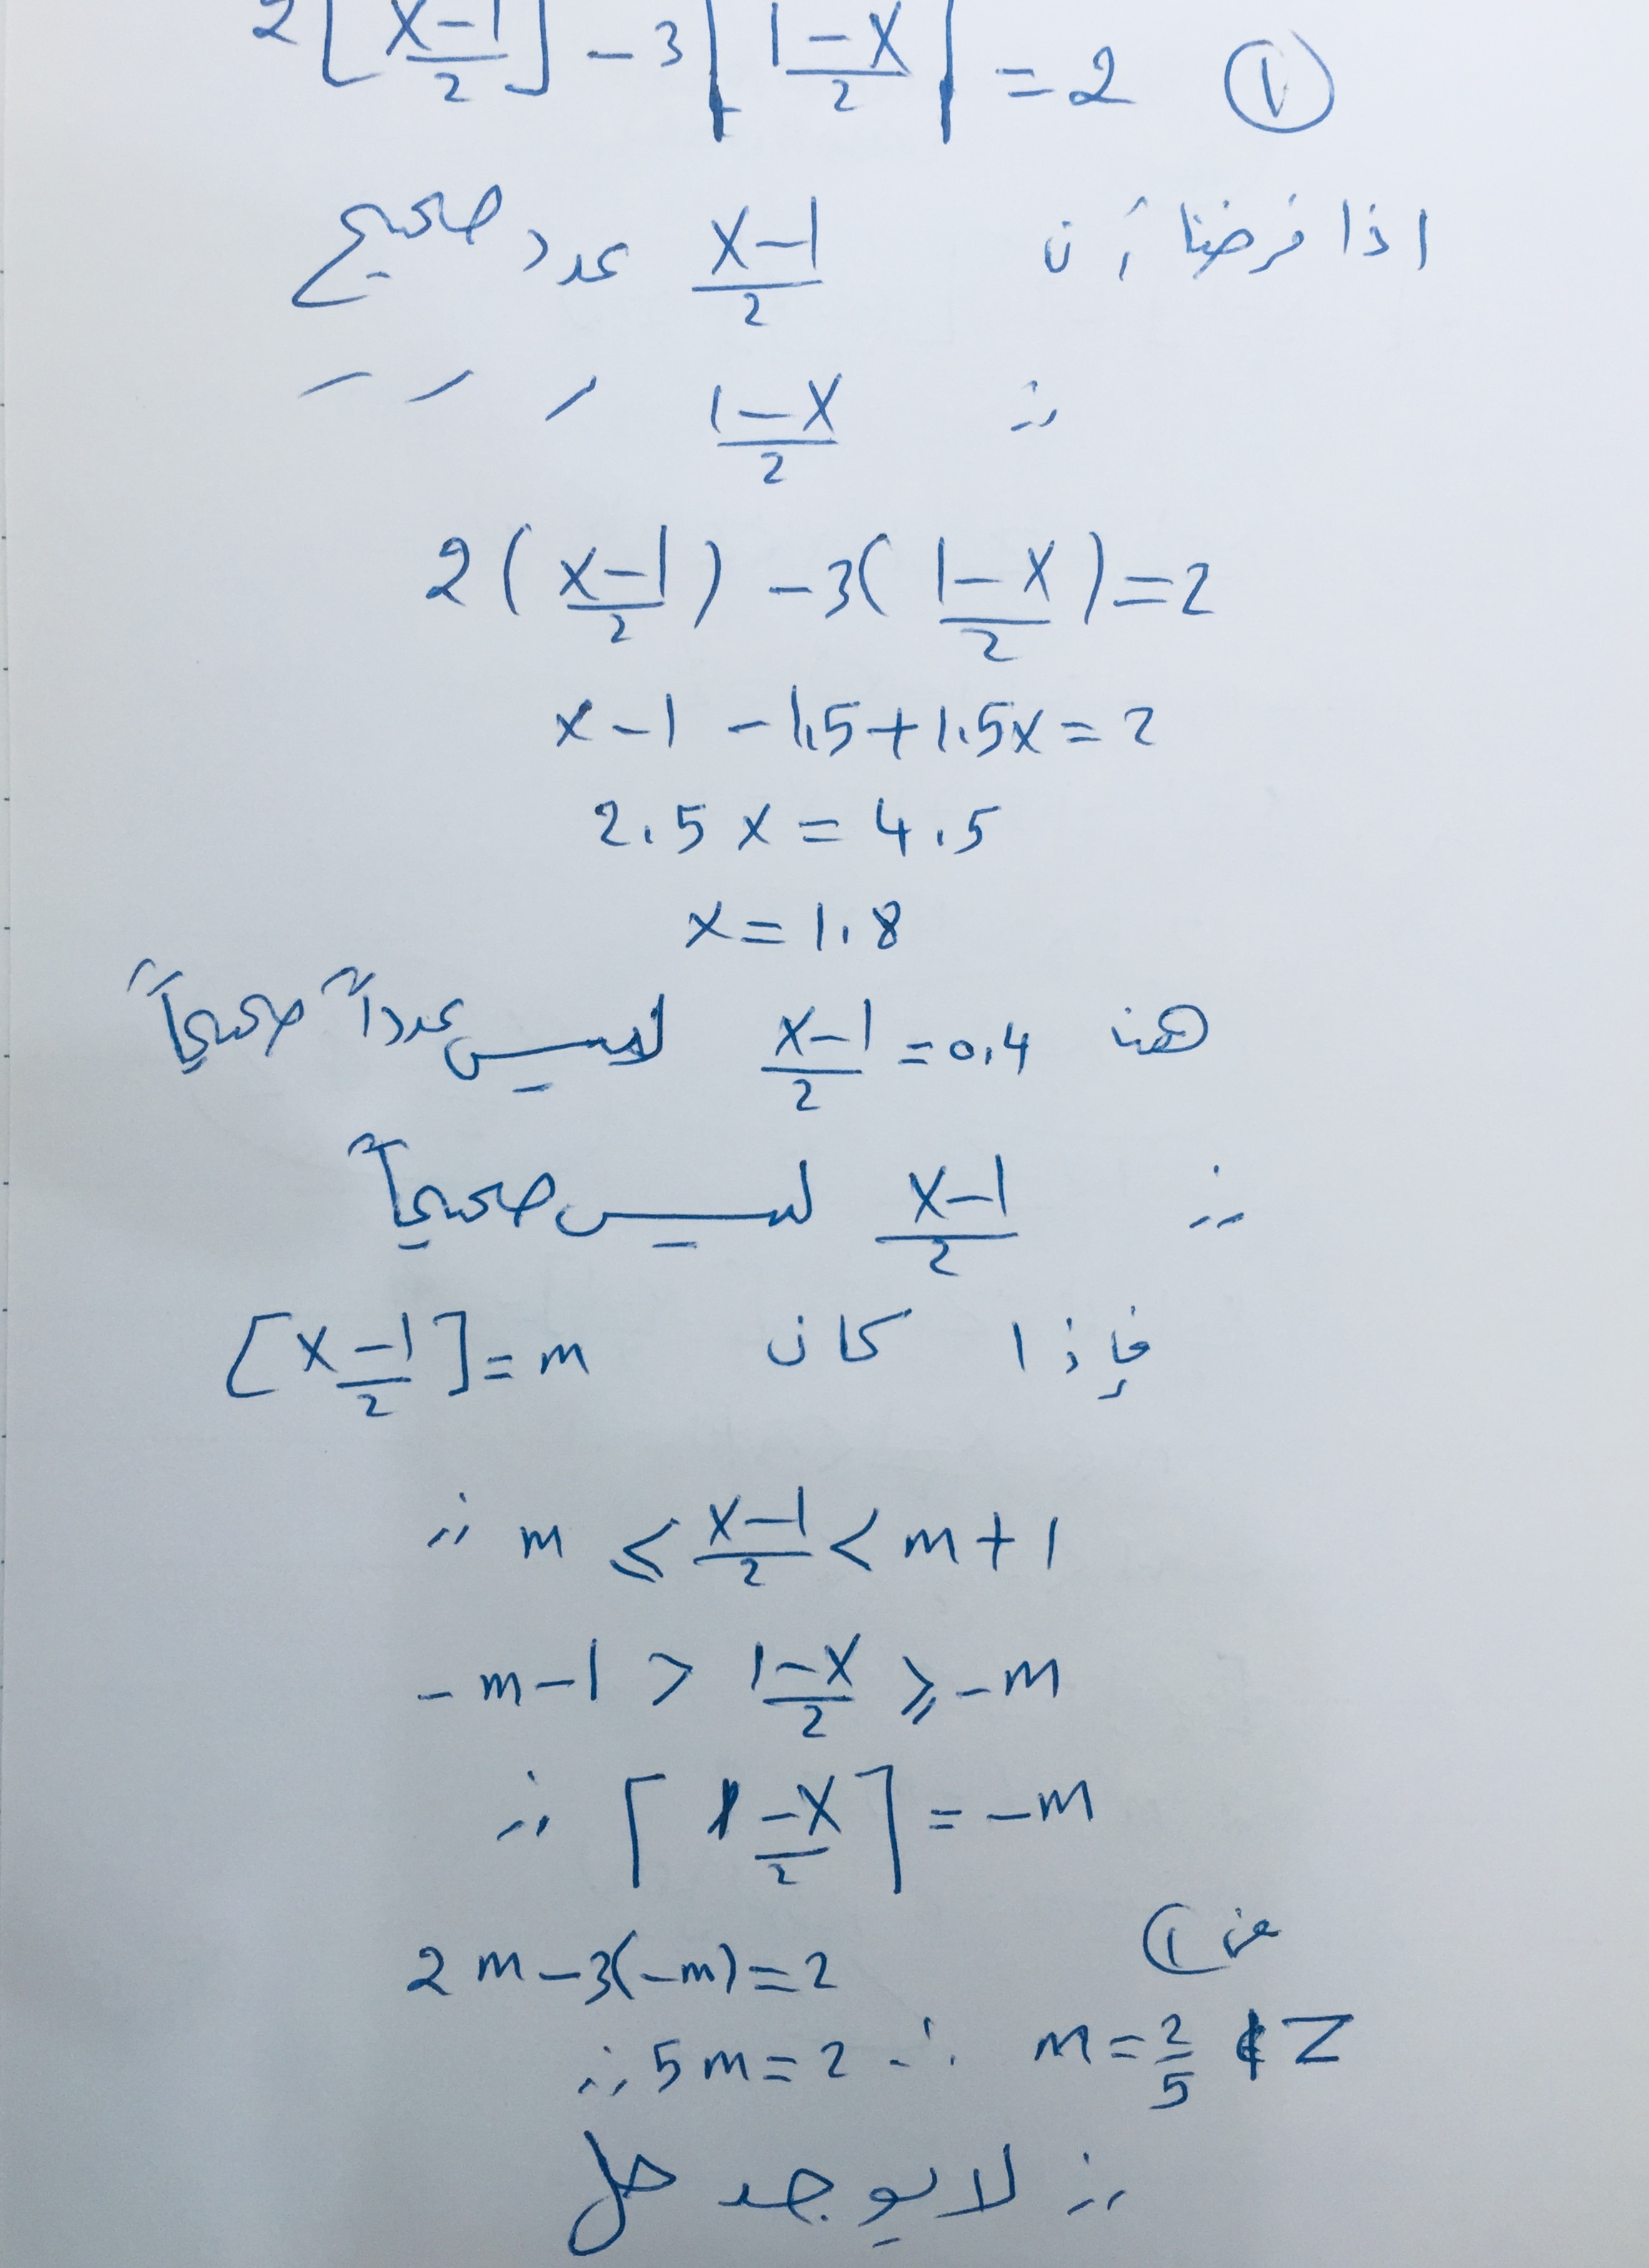 2[x-1/2] - 3⌈1-x/2⌉ = 2 ①
اذا فرضنا أن x-1/2 عدد صحيح
∴ 1-x/2 〃 〃
2(x-1/2) -3(1-x/2)=2
x-1 -1.5+1.5x=2
2.5x=4.5
x=1.8
هنا x-1/2=0.4 ليس عدداً صحيحاً
∴ x-1/2 ليس صحيحاً
فإذا كان [x-1/2]=m
∴ m ≤ x-1/2 < m+1
-m-1 > 1-x/2 ≥ -m
∴ ⌈1-x/2⌉ = -m
من ①
2m-3(-m)=2
∴ 5m=2 ∴ m=2/5 ∉ Z
∴ لا يوجد حل